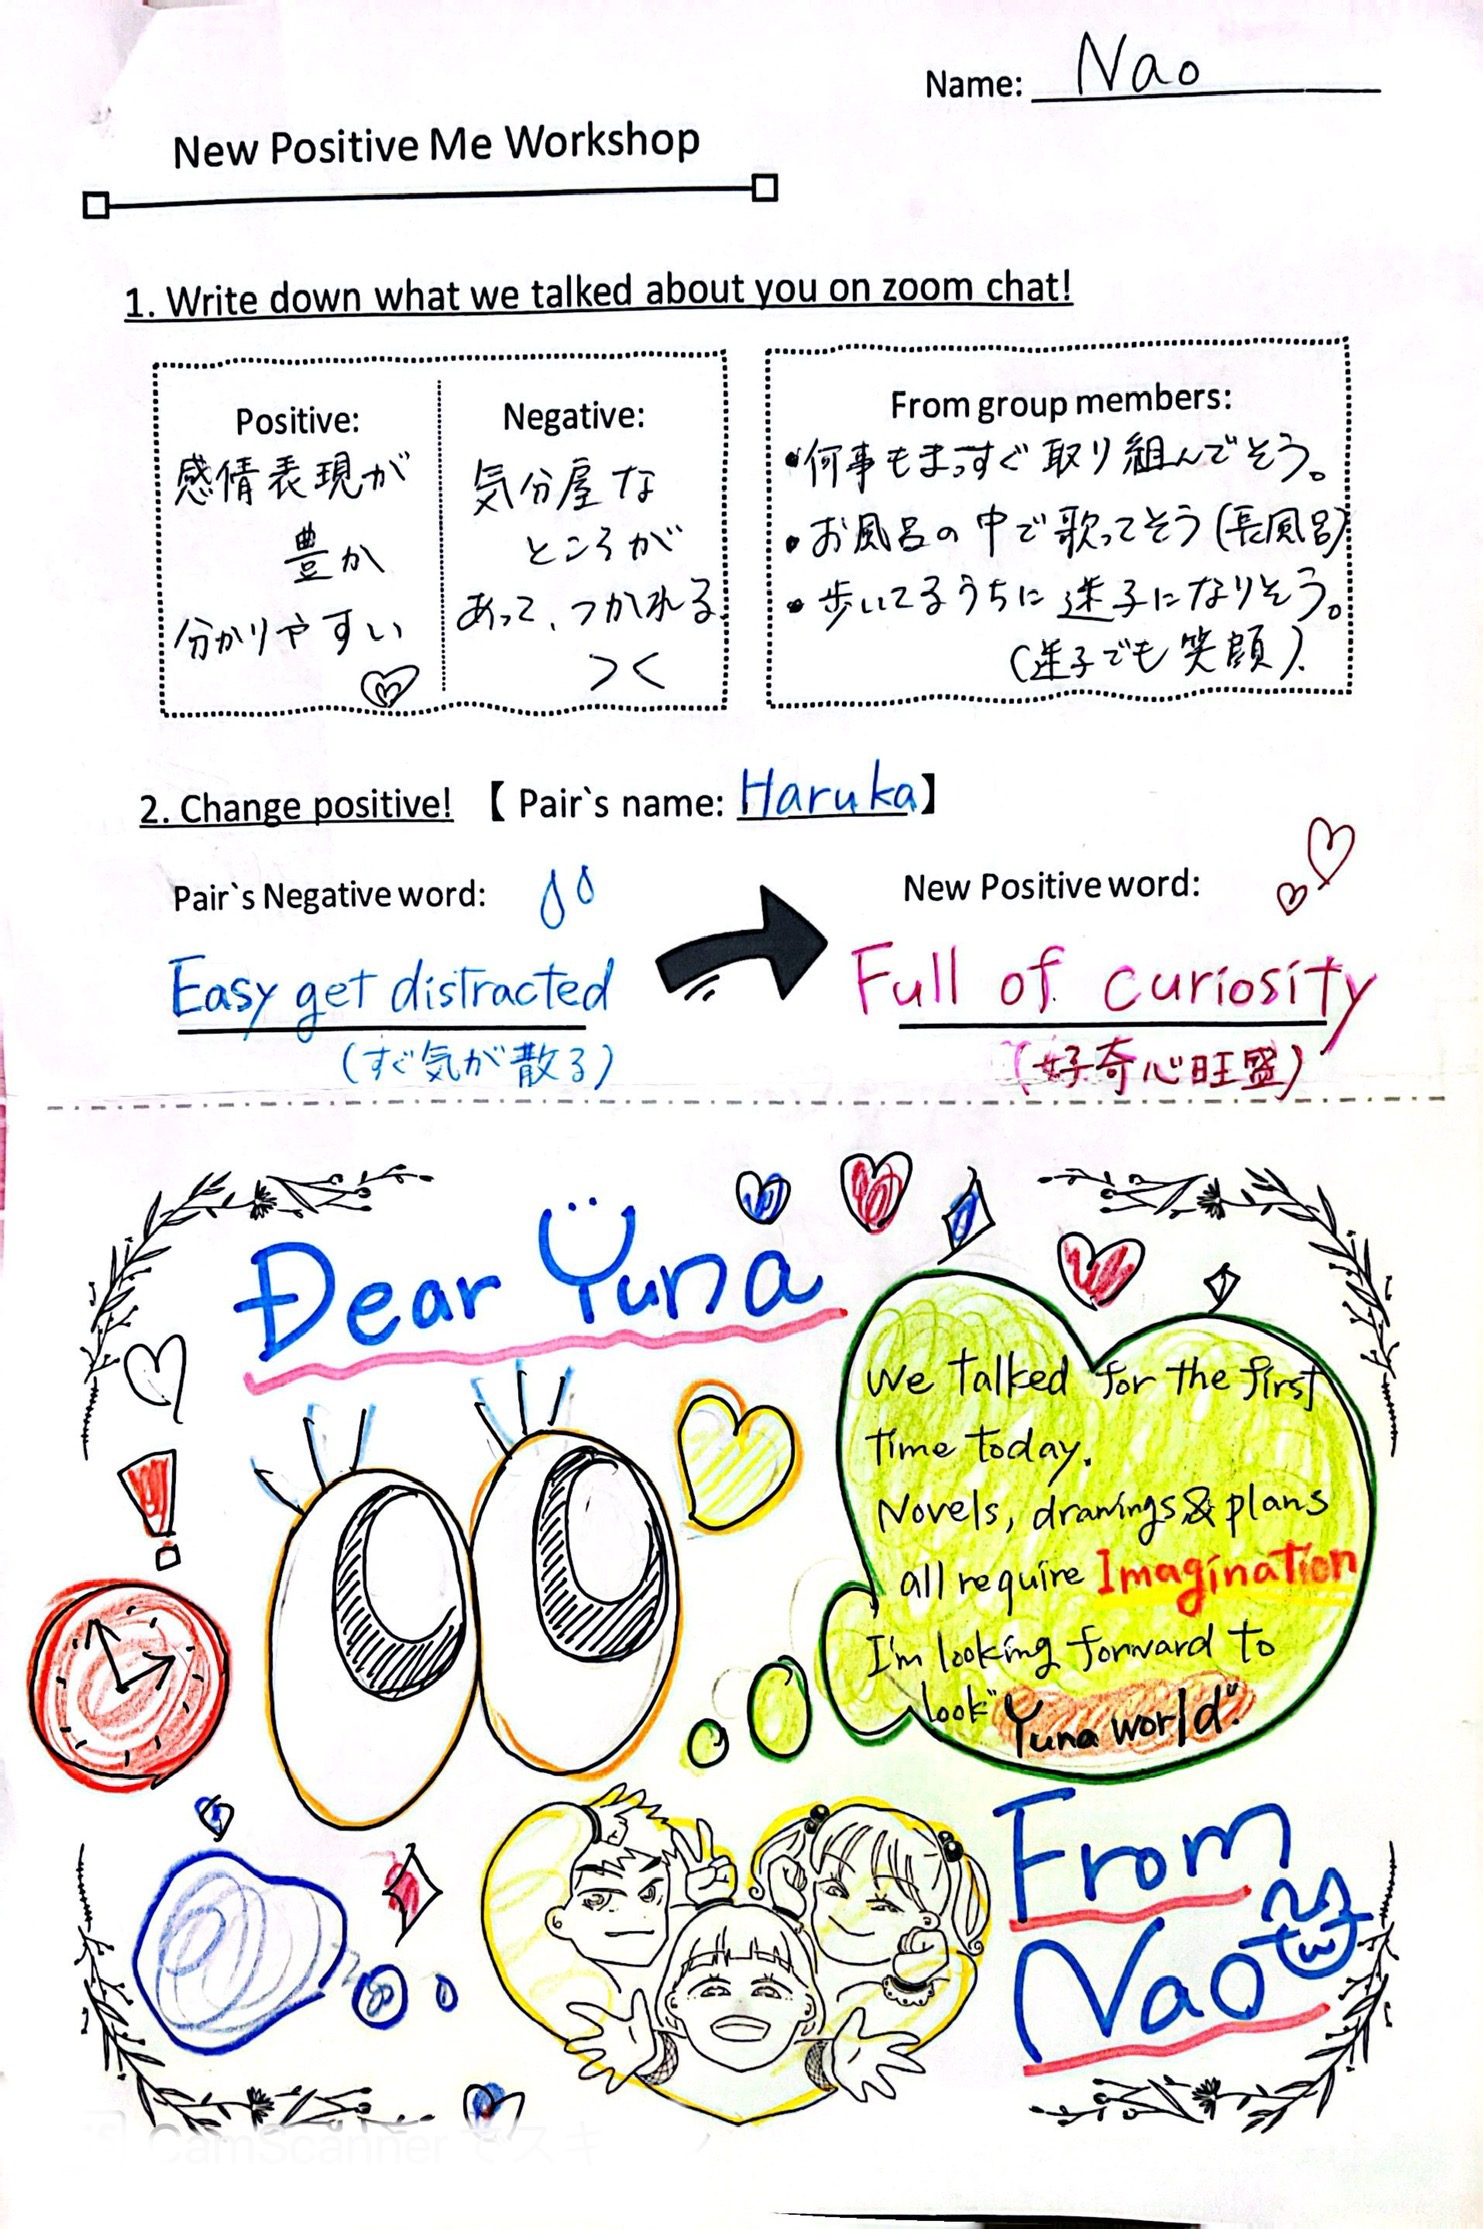 Name: Nao
New Positive Me Workshop
1. Write down what we talked about you on zoom chat!
Positive:
感情表現が
豊か
分かりやすい
Negative:
気分屋な
ところが
あって、つかれる
From group members:
・何事もまっすぐ取り組んでそう。
・お風呂の中で歌ってそう(長風呂)
・歩いてるうちに迷子になりそう。
(迷子でも笑顔).
2. Change positive! 【 Pair`s name: Haruka】
Pair`s Negative word:
Easy get distracted
(すぐ気が散る)
New Positive word:
Full of curiosity
(好奇心旺盛)
Dear Yuna
We talked for the first
time today.
Novels, drawings & plans
all require Imagination
I'm looking forward to
look "Yuna world".
From
Nao
CamScanner でスキ